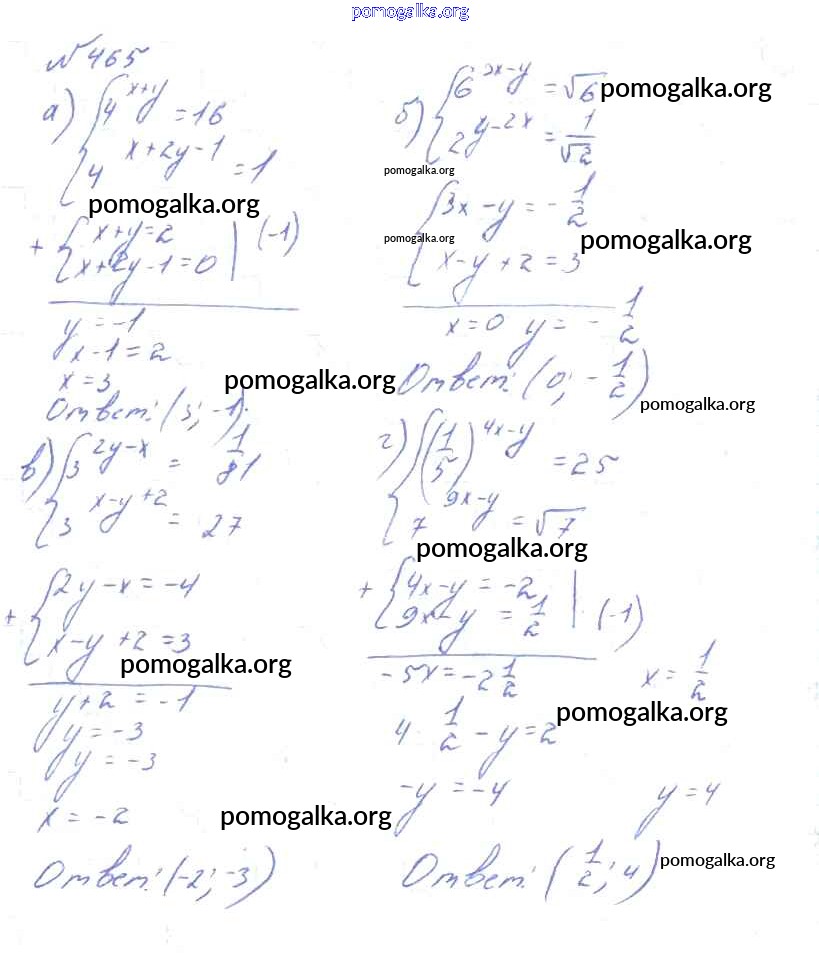 pomogalka.org
№465
а) { 4^(x+y) = 16
4^(x+2y-1) = 1
pomogalka.org
+ { x+y=2 | (-1)
x+2y-1=0
y = -1
x-1=2
x=3
pomogalka.org
Ответ: (3; -1).
б) { 6^(3x-y) = √6
pomogalka.org
2^(y-2x) = 1/√2
pomogalka.org
{ 3x-y = -1/2
pomogalka.org
pomogalka.org
x-y+2=3
x=0 y= -1/2
Ответ: (0; -1/2)
pomogalka.org
в) { 3^(2y-x) = 1/81
3^(x-y+2) = 27
+ { 2y-x=-4
x-y+2=3
pomogalka.org
y+2=-1
y=-3
y=-3
x=-2
pomogalka.org
Ответ: (-2; -3)
г) { (1/5)^(4x-y) = 25
7^(9x-y) = √7
pomogalka.org
+ { 4x-y=-2 | (-1)
9x-y = 1/2
-5x=-2 1/2 x= 1/2
pomogalka.org
4 · 1/2 - y=2
-y=-4 y=4
Ответ: (1/2; 4)
pomogalka.org